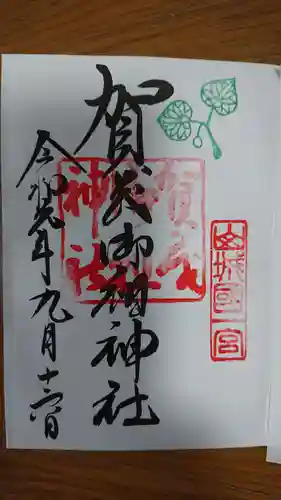 山城國一宮
賀茂御祖神社
賀茂
御祖
神社
令和元年九月十六日